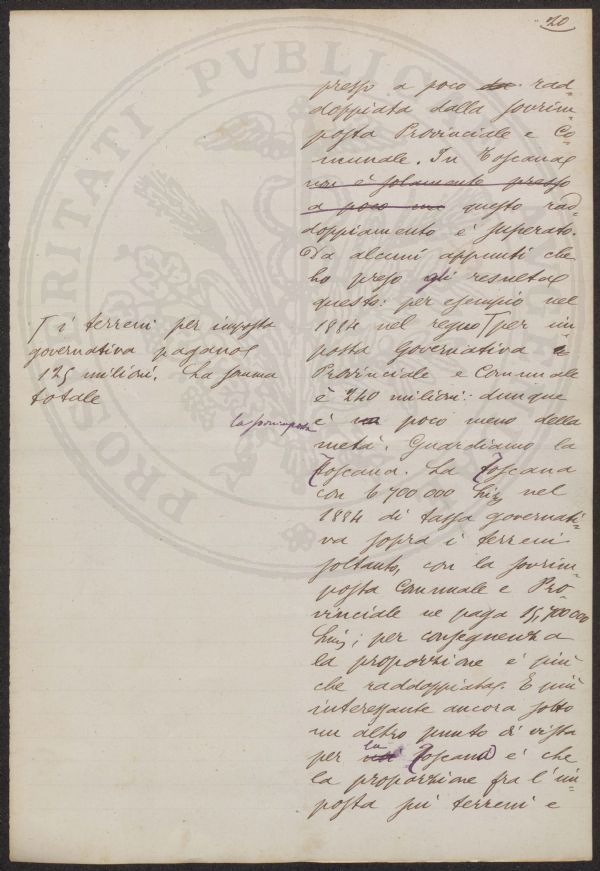 20
presso a poco da rad=
doppiata dalla sovrim=
posta Provinciale e Co=
munale. In Toscana
non è solamente presso
a poco ma questo rad=
doppiamento è superato.
Da alcuni appunti che
ho preso gli resulta
questo: per esempio nel
1884 nel regno Γ per im
posta Governativa e
Provinciale e Comunale
è 240 milioni: dunque
è poco meno della
metà. Guardiamo la
Toscana. La Toscana
con 6 700 000 Lire nel
1884 di tassa governati=
va sopra i terreni
soltanto, con la sovrim=
posta Comunale e Pro=
vinciale ne paga 15,700000
Lire; per conseguenza
la proporzione è più
che raddoppiata. E più
interessante ancora sotto
un altro punto di vista
per la Toscana è che
la proporzione fra l'im=
posta sui terreni e
Γ i terreni per imposta
governativa pagano
125 milioni. La somma
totale
la sovrimposta
PROSPERITATI PVBLICAE